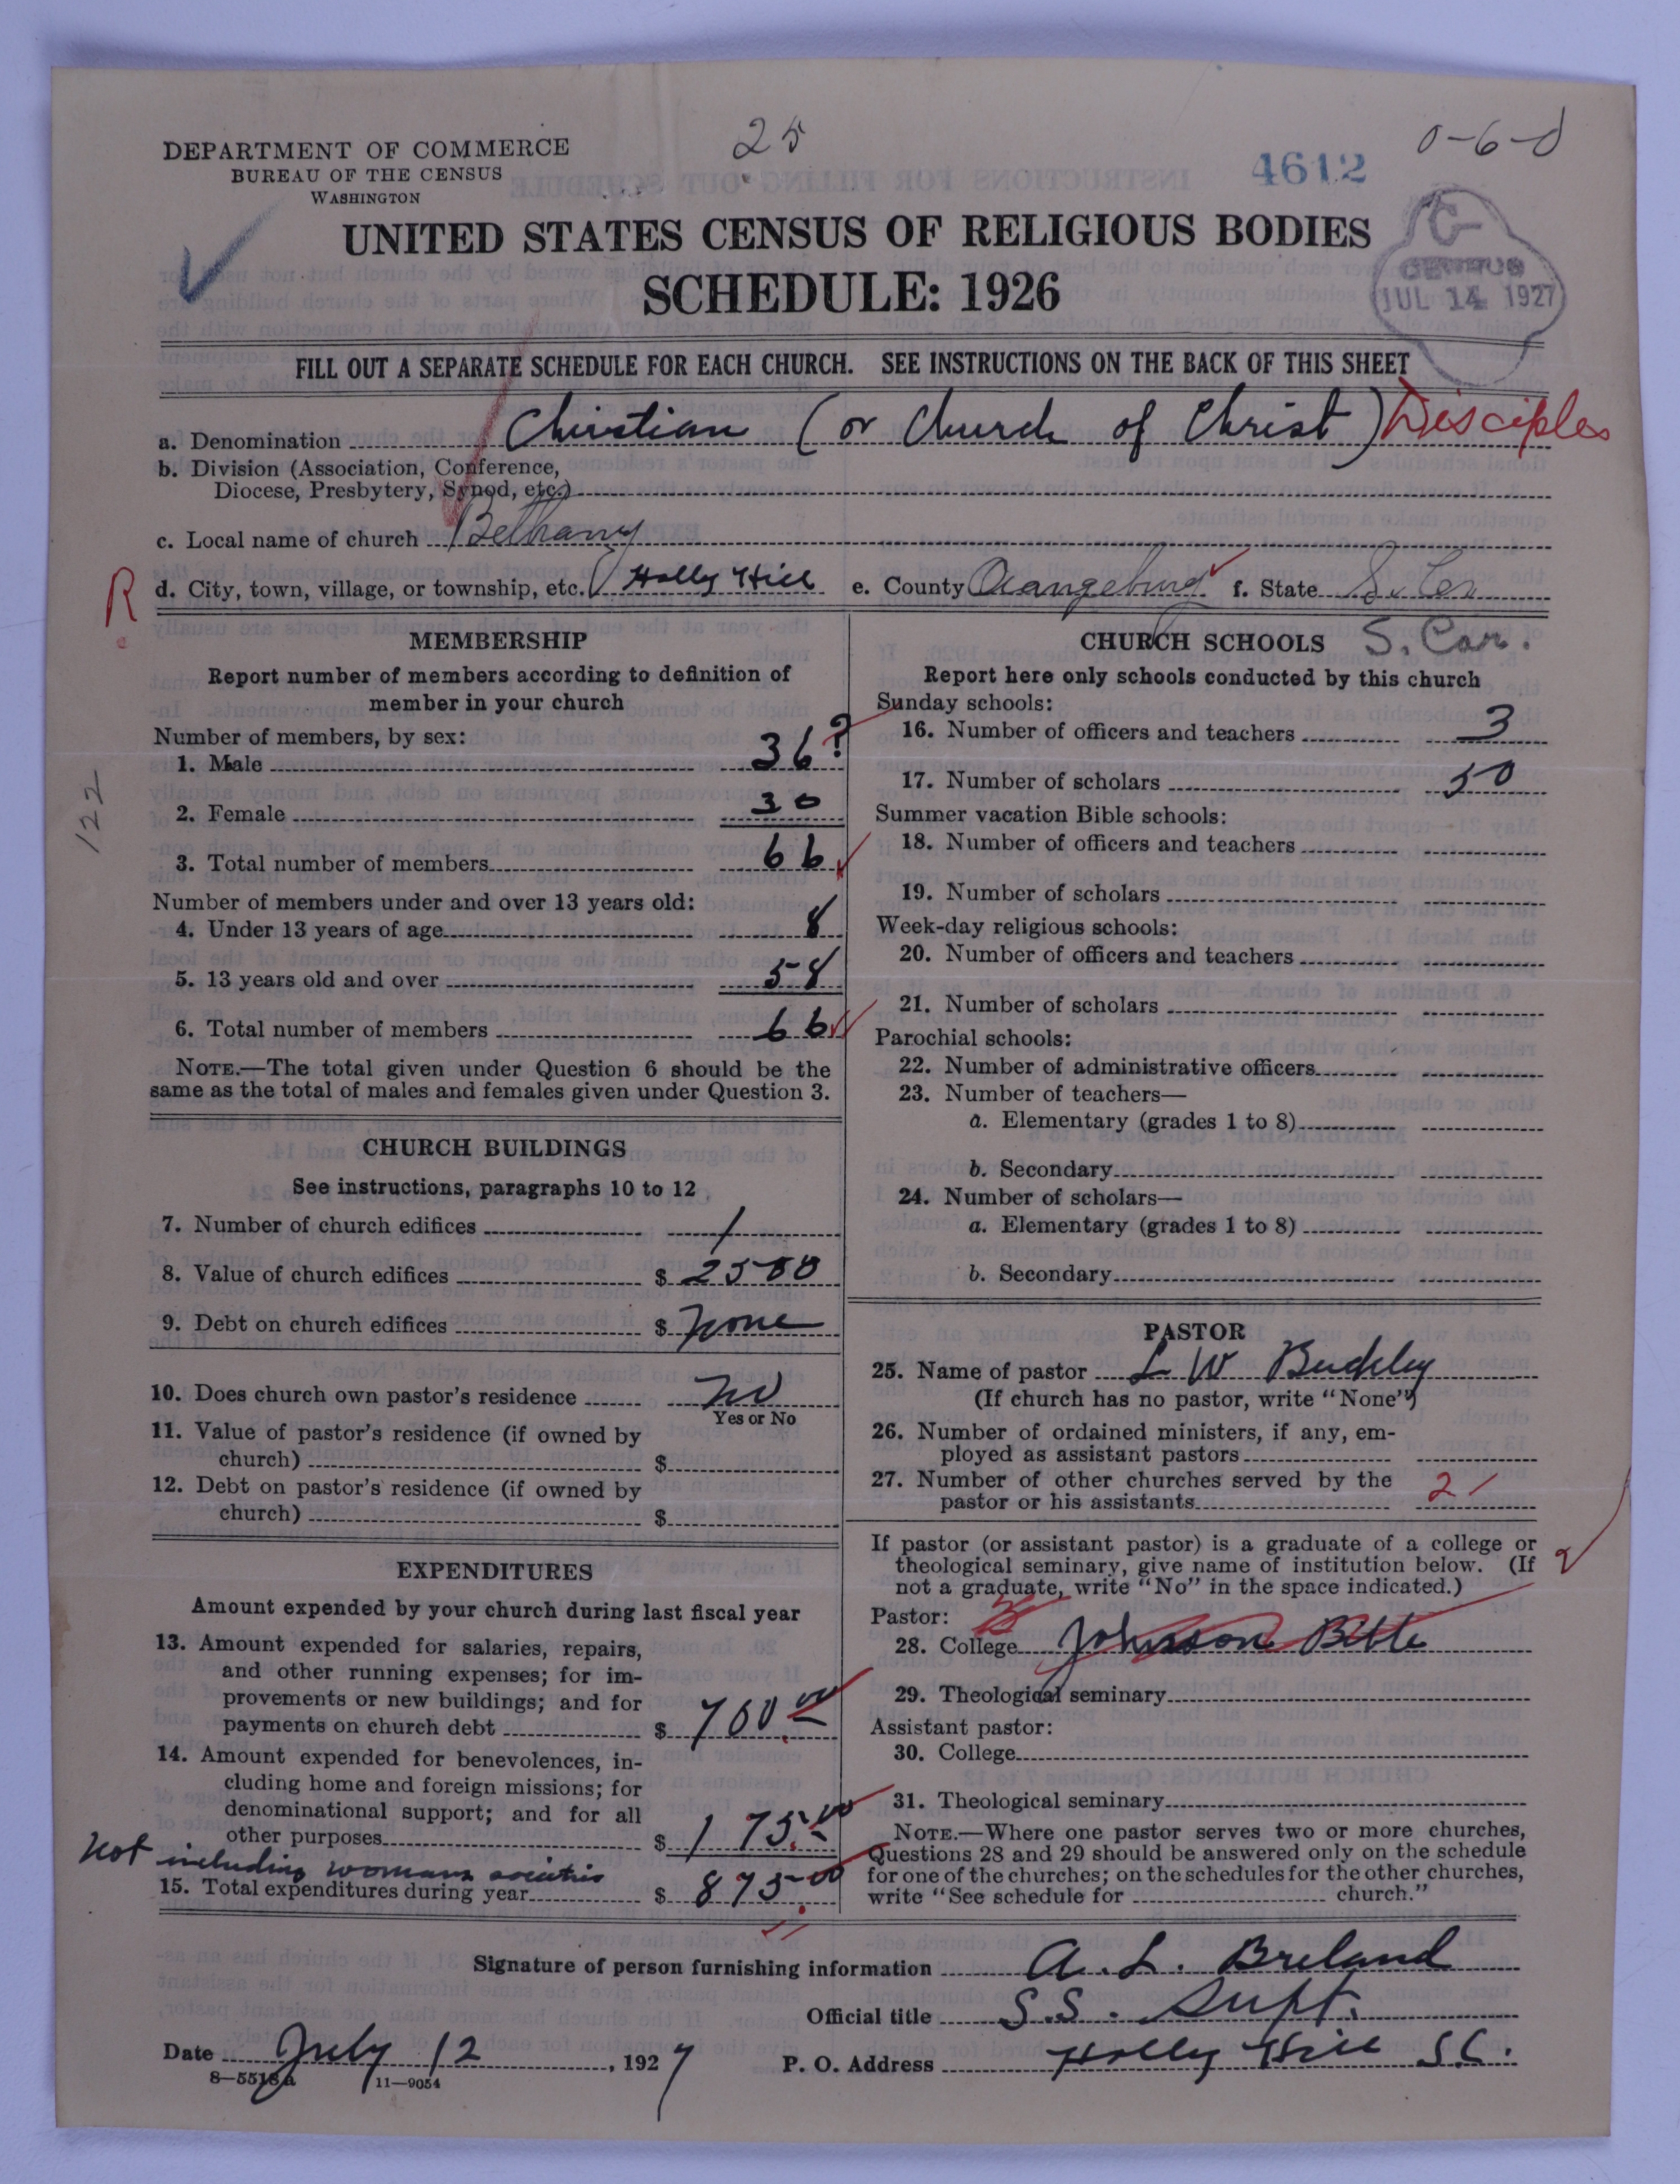 DEPARTMENT OF COMMERCE
BUREAU OF THE CENSUS
WASHINGTON
25
4612
0-6-0
UNITED STATES CENSUS OF RELIGIOUS BODIES
SCHEDULE: 1926
CENSUS
JUL 14 1927
FILL OUT A SEPARATE SCHEDULE FOR EACH CHURCH. SEE INSTRUCTIONS ON THE BACK OF THIS SHEET
a. Denomination Christian (or Church of Christ) Disciples
b. Division (Association, Conference,
Diocese, Presbytery, Synod, etc.)
c. Local name of church Bethany
R
d. City, town, village, or township, etc. Holly Hill e. County Orangeburg f. State S. Car
S. Car.
122
MEMBERSHIP
Report number of members according to definition of
member in your church
Number of members, by sex:
1. Male 36 ?
2. Female 30
3. Total number of members 66
Number of members under and over 13 years old:
4. Under 13 years of age 8
5. 13 years old and over 58
6. Total number of members 66
NOTE.—The total given under Question 6 should be the
same as the total of males and females given under Question 3.
CHURCH BUILDINGS
See instructions, paragraphs 10 to 12
7. Number of church edifices 1
8. Value of church edifices $ 2500
9. Debt on church edifices $ None
10. Does church own pastor's residence No
Yes or No
11. Value of pastor's residence (if owned by
church) $
12. Debt on pastor's residence (if owned by
church) $
EXPENDITURES
Amount expended by your church during last fiscal year
13. Amount expended for salaries, repairs,
and other running expenses; for im-
provements or new buildings; and for
payments on church debt $ 700.00
14. Amount expended for benevolences, in-
cluding home and foreign missions; for
denominational support; and for all
other purposes $ 175.00
Not including womans societies
15. Total expenditures during year $ 875.00
CHURCH SCHOOLS
Report here only schools conducted by this church
Sunday schools:
16. Number of officers and teachers 3
17. Number of scholars 50
Summer vacation Bible schools:
18. Number of officers and teachers
19. Number of scholars
Week-day religious schools:
20. Number of officers and teachers
21. Number of scholars
Parochial schools:
22. Number of administrative officers
23. Number of teachers—
a. Elementary (grades 1 to 8)
b. Secondary
24. Number of scholars—
a. Elementary (grades 1 to 8)
b. Secondary
PASTOR
25. Name of pastor L W Buckley
(If church has no pastor, write "None")
26. Number of ordained ministers, if any, em-
ployed as assistant pastors
27. Number of other churches served by the
pastor or his assistants 2
If pastor (or assistant pastor) is a graduate of a college or
theological seminary, give name of institution below. (If
not a graduate, write "No" in the space indicated.)
Pastor:
28. College Johnson Bible
29. Theological seminary
Assistant pastor:
30. College
31. Theological seminary
NOTE.—Where one pastor serves two or more churches,
Questions 28 and 29 should be answered only on the schedule
for one of the churches; on the schedules for the other churches,
write "See schedule for church."
Signature of person furnishing information A. L. Breland
Official title S.S. Supt.
Date July 12, 1927 P. O. Address Holly Hill S.C.
8—5518a 11—9054